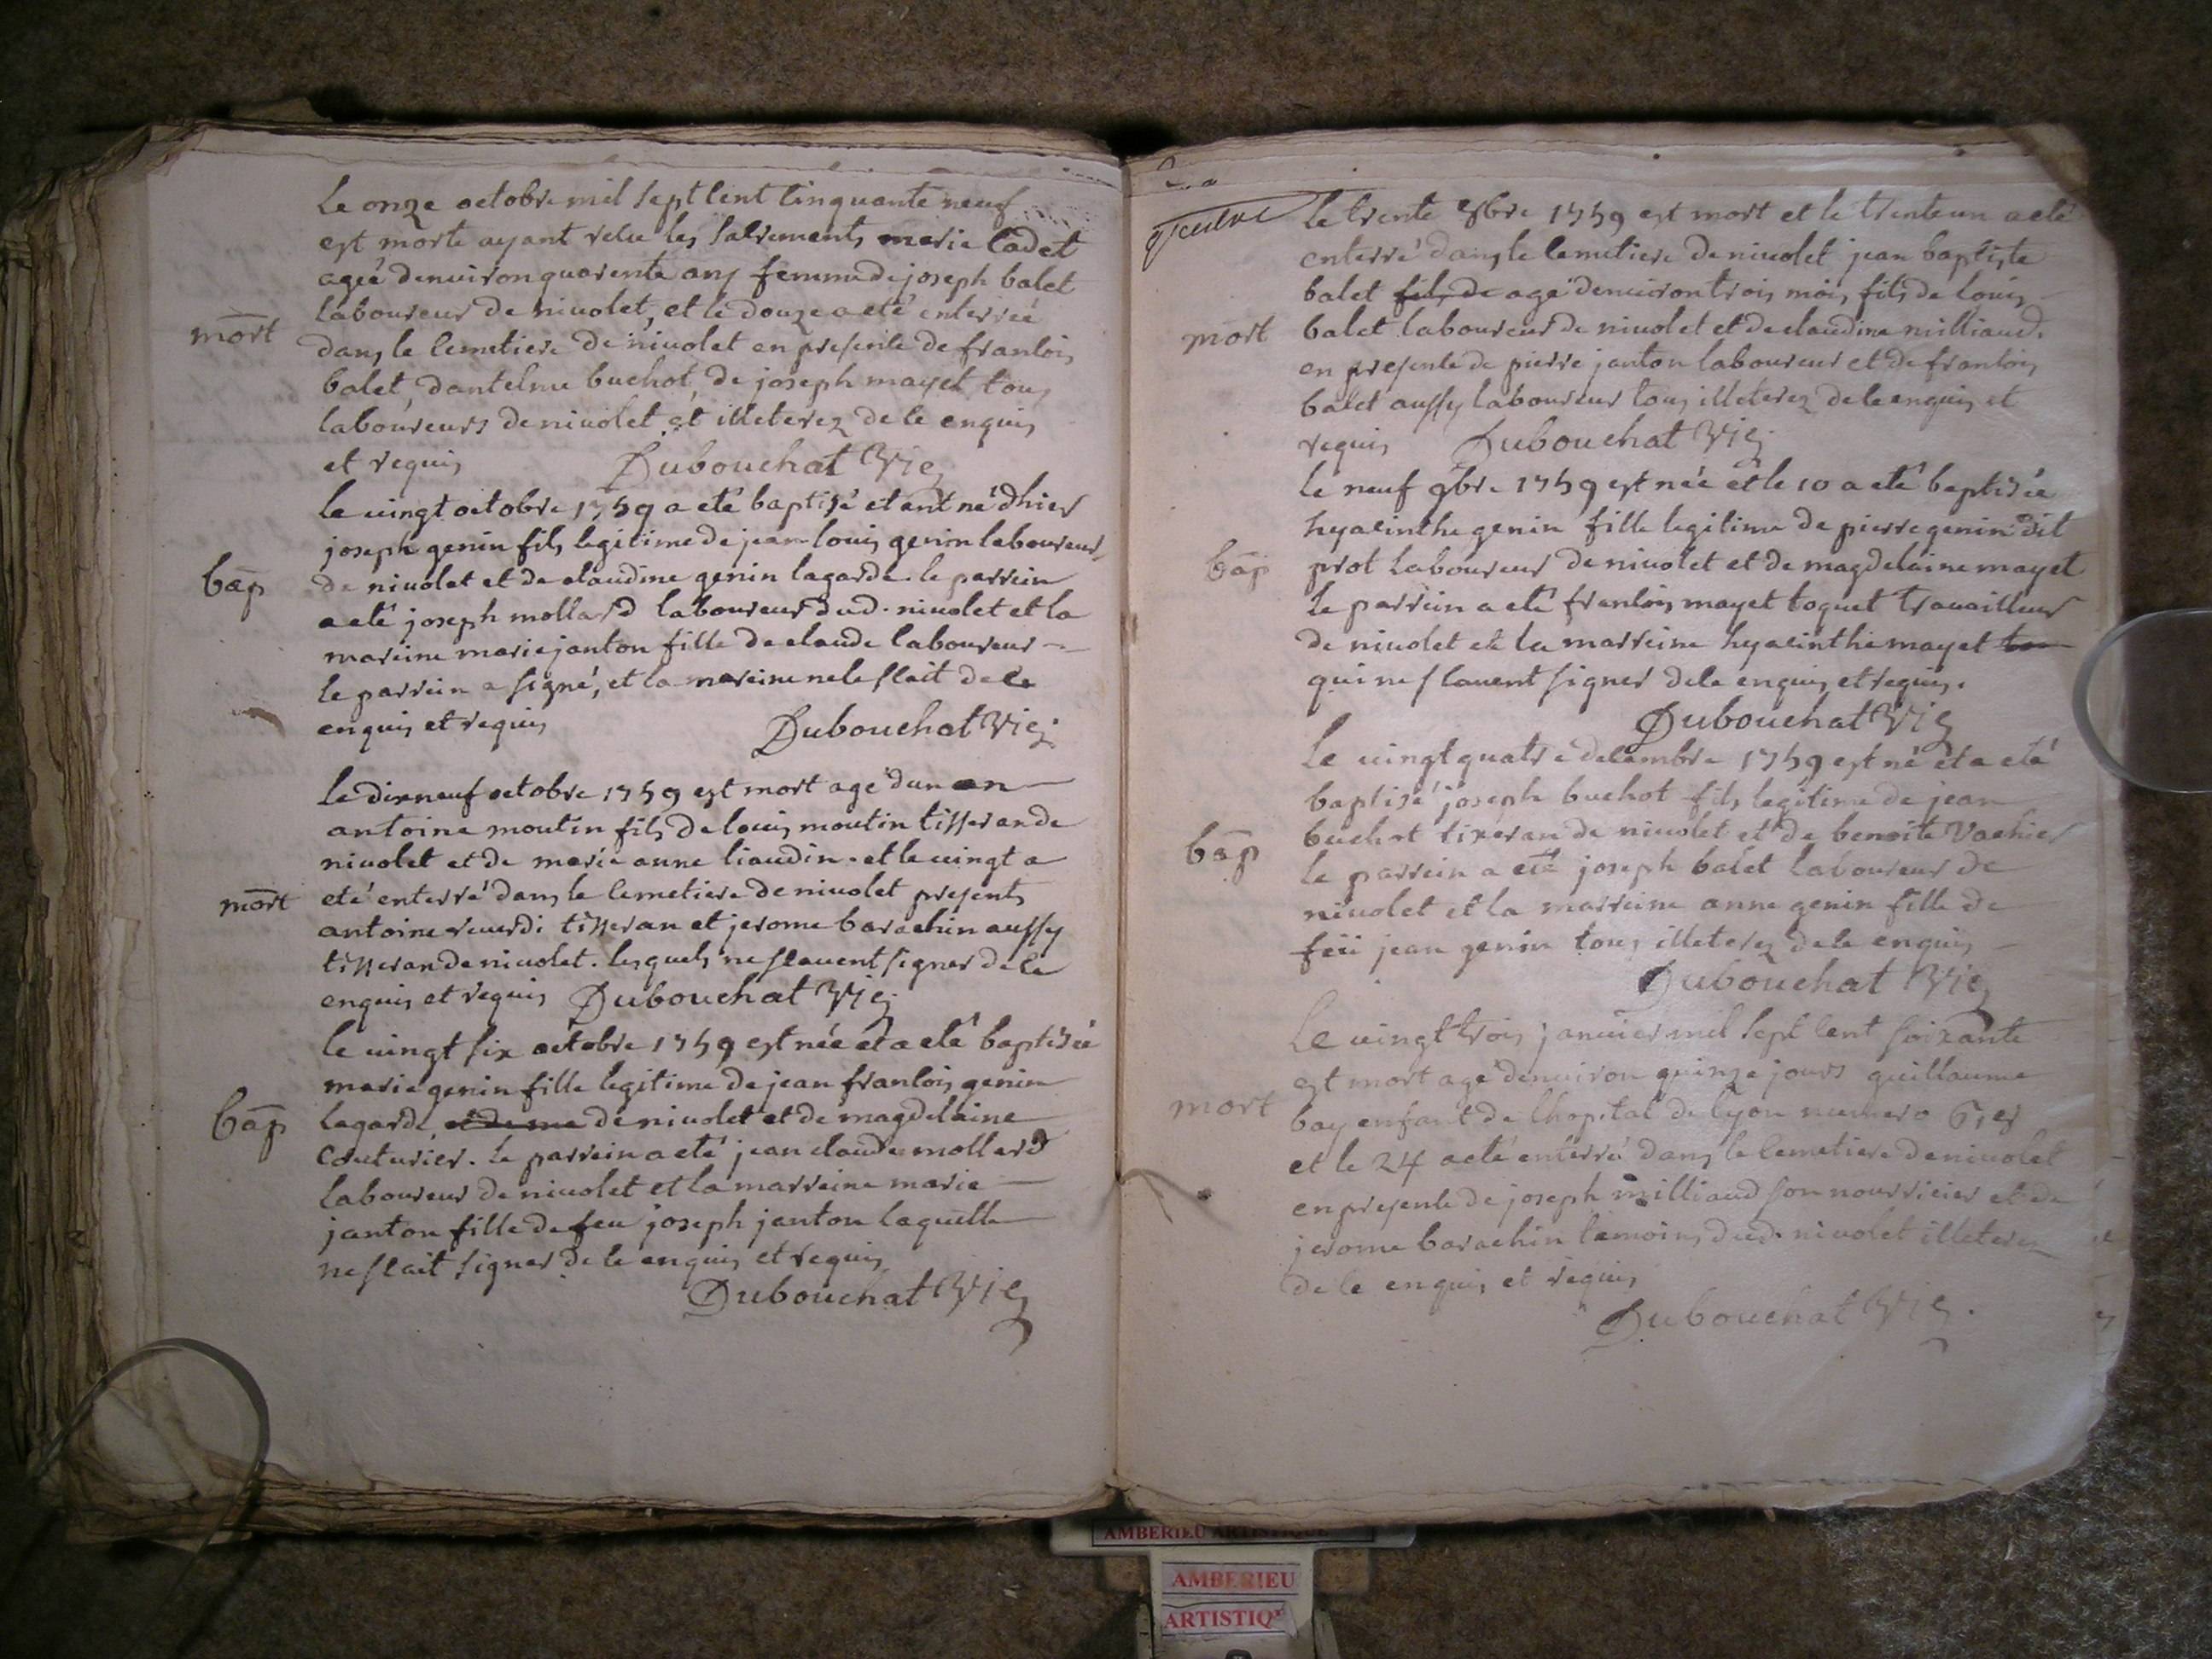 le onze octobre mil sept cent cinquante neuf
est morte ayant recu les sacrements marie cadet
ageé denuiron quarente ans femme de joseph balet
laboureur de niuolet, et le douze a eté enterreé
mort
dans le cemetiere de niuolet en presence de francois
balet, dantelme buchot, de joseph mayet tous
laboureurs de niuolet et illeterez de ce enquis
et requis Dubouchat Vic
le uingt octobre 1759 a eté baptisé etant né dhier
joseph genin fils legitime de jean louis genin laboureur
bap
de niuolet et de claudine genin lagarde. le parrein
a eté joseph mollard laboureur dud. niuolet et la
mareine marie janton fille de claude laboureur
le parrein a signé, et la mareine ne le scait de ce
enquis et requis Dubouchat Vic.
le dixneuf octobre 1759 est mort agé dun an
antoine moutin fils de louis moutin tisseran de
niuolet et de marie anne liaudin. et le uingt a
mort
eté enterré dans le cemetiere de niuolet presents
antoine reuerdi tisseran et jerome barachin aussy
tisseran de niuolet. lesquels ne scauent signer de ce
enquis et requis Dubouchat Vic.
le uingt six octobre 1759 est née et a eté baptisée
marie genin fille legitime de jean francois genin
bap
lagarde et de ma de niuolet et de magdelaine
couturier. le parrein a eté jean claude mollard
laboureur de niuolet et la marreine marie
janton fille de feu joseph janton laquelle
ne scait signer de ce enquis et requis
Dubouchat Vic
le trente 8bre 1759 est mort et le trenteun a eté
enterré dans le cemetiere de niuolet jean baptiste
balet fils de agé denuiron trois mois fils de louis
mort
balet laboureur de niuolet et de claudine milliaud.
en presence de pierre janton laboureur et de francois
balet aussy laboureur tous illeterez de ce enquis et
requis Dubouchat Vic.
le neuf 9bre 1759 est née et le 10 a eté baptisée
hyacinthe genin fille legitime de pierre genin dit
bap
prot laboureur de niuolet et de magdelaine mayet
le parrein a eté francois mayet toquet trauailleur
de niuolet et la marreine hyacinthe mayet
qui ne scauent signer de ce enquis et requis.
Dubouchat Vic
le uingt quatre decembre 1759 est né et a eté
baptisé joseph buchot fils legitime de jean
buchot tixeran de niuolet et de benoite Vachier
bap
le parrein a eté joseph balet laboureur de
niuolet et la marreine anne genin fille de
feü jean genin tous illeterez de ce enquis
Dubouchat Vic
le uingt trois januier mil sept cent soixante
est mort agé denuiron quinze jours guillaume
mort
bay enfant de lhopital de lyon numero
et le 24 a eté enterré dans le cemetiere de niuolet
en presence de joseph milliaud son nourricier et de
jerome barachin temoins dud. niuolet illeterez
de ce enquis et requis
Dubouchat Vic.
AMBERIEU ARTISTIQUE
AMBERIEU
ARTISTIQ